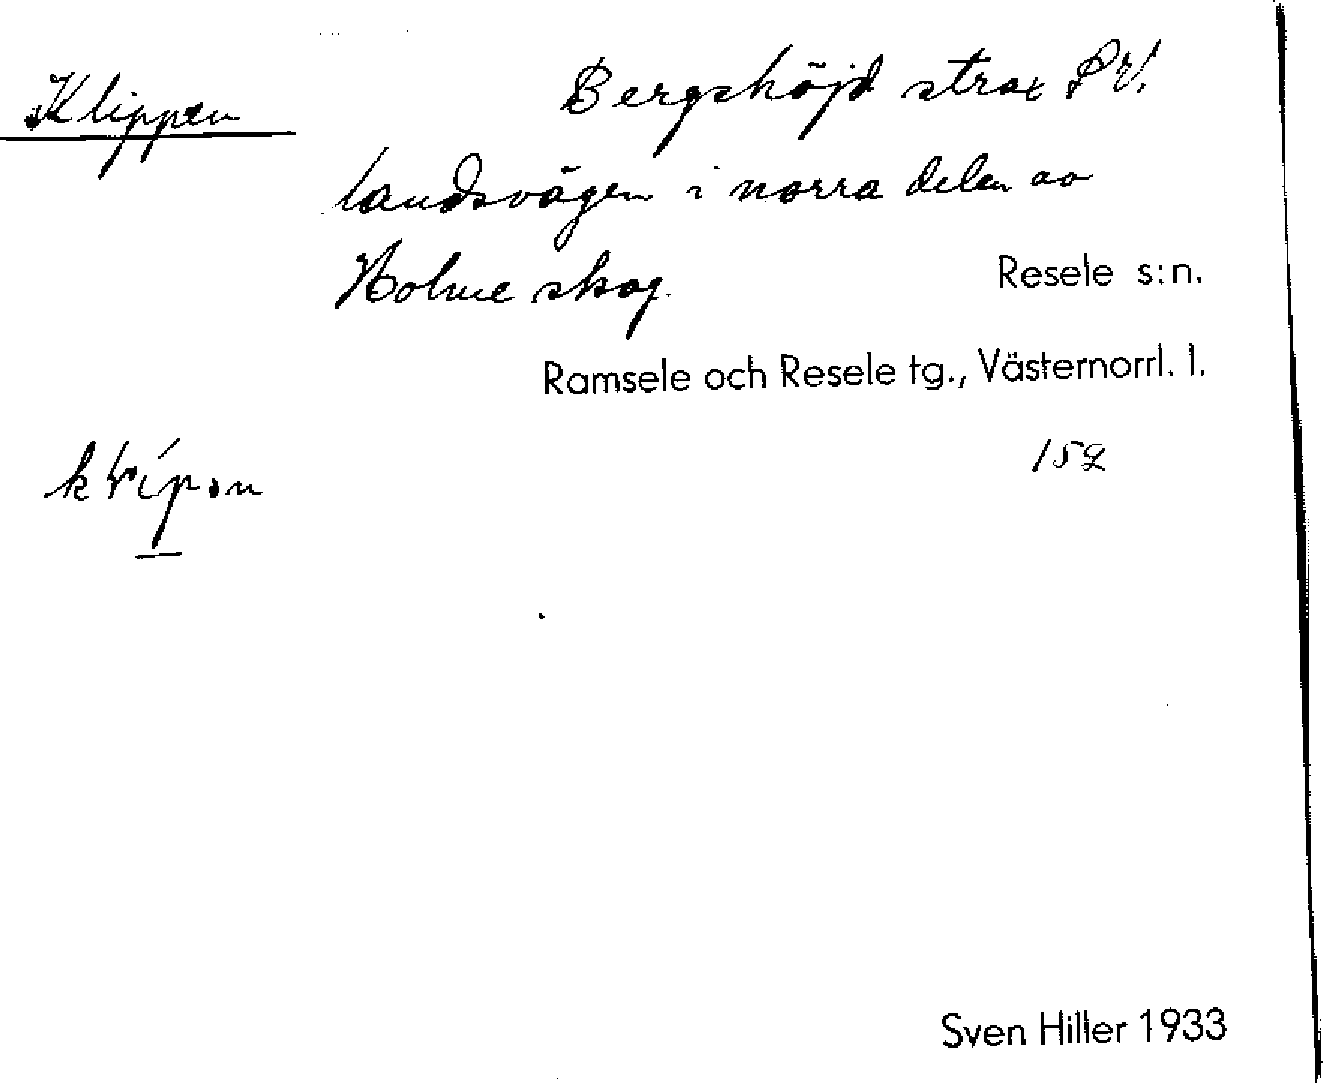 Klippen
Bergshöjd strax SV.
landsvägen i norra delen av
Holme skog.
Resele s:n.
Ramsele och Resele tg., Västernorrl. l.
152
Sven Hiller 1933